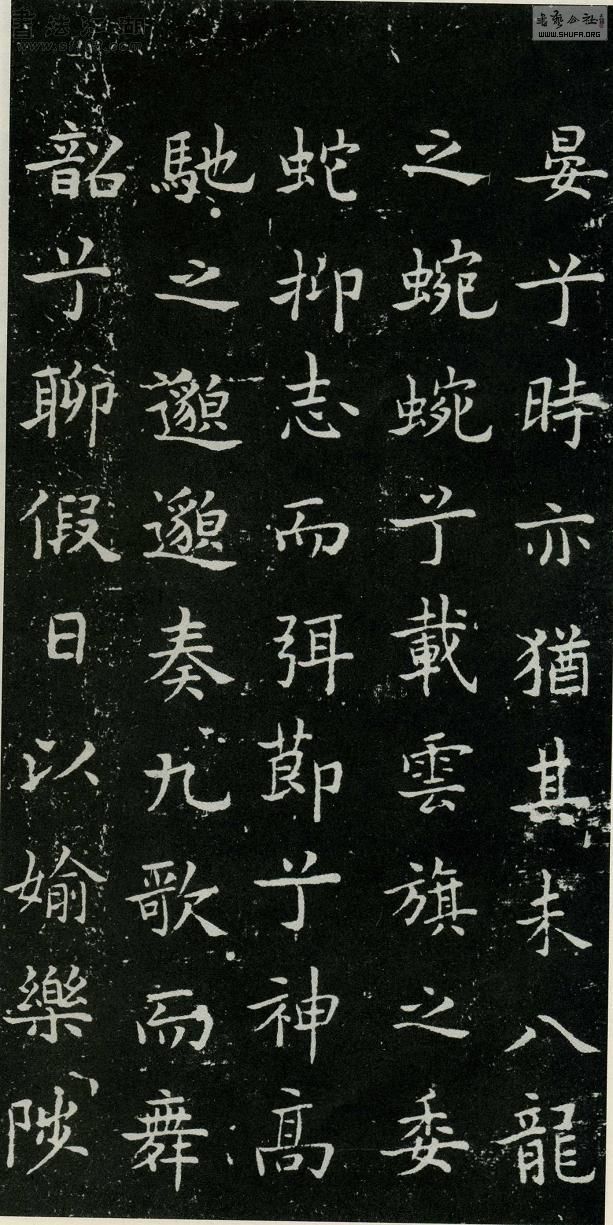 晏兮時亦猶其未八龍
之蜿蜿兮載雲旗之委
蛇抑志而弭節兮神高
馳之邈邈奏九歌而舞
韶兮聊假日以媮樂陟
WWW.SHUFA.ORG